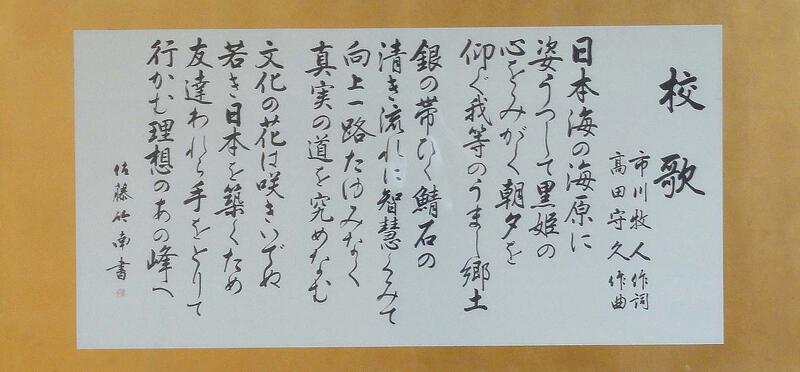 校歌
市川牧人作詞
高田守久作曲
日本海の海原に
姿うつして黒姫の
心をみがく朝夕を
仰ぐ我等のうまし郷土
銀の帯ひく鯖石の
清き流れに智慧くみて
向上一路たゆみなく
真実の道を究めなむ
文化の花は咲きいでぬ
若き日本を築くため
友達われら手をとりて
行かむ理想のあの峰へ
佐藤 南書